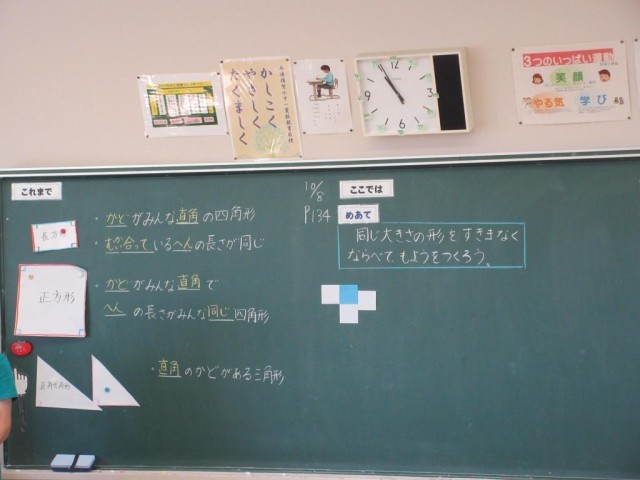 かしこく
やさしく
たくましく
3つのいっぱい運動
笑顔
やる気
学び
これまで
長方形
・かどがみんな直角の四角形
・むかい合っているへんの長さが同じ
正方形
・かどがみんな直角で
へんの長さがみんな同じ四角形
直角三角形
・直角のかどがある三角形
10/8
P134
ここでは
めあて
同じ大きさの形をすきまなく
ならべてもようをつくろう。